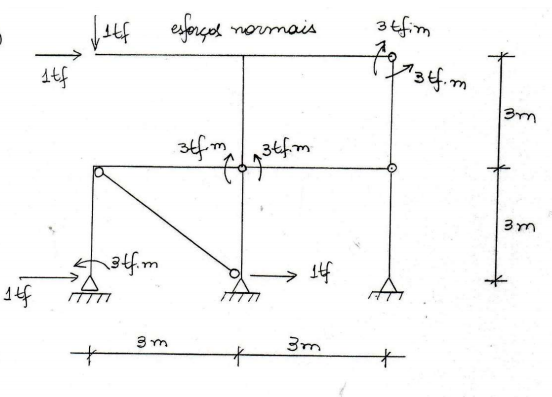 )
1tf
esforços normais
3tf.m
1tf
3tf.m
3m
3tf.m
3tf.m
3m
3tf.m
1tf
1tf
3m
3m